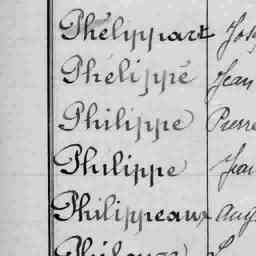 Phélippart
Phélippé Jean
Philippe Pierre
Philippe Jean
Philippeaux